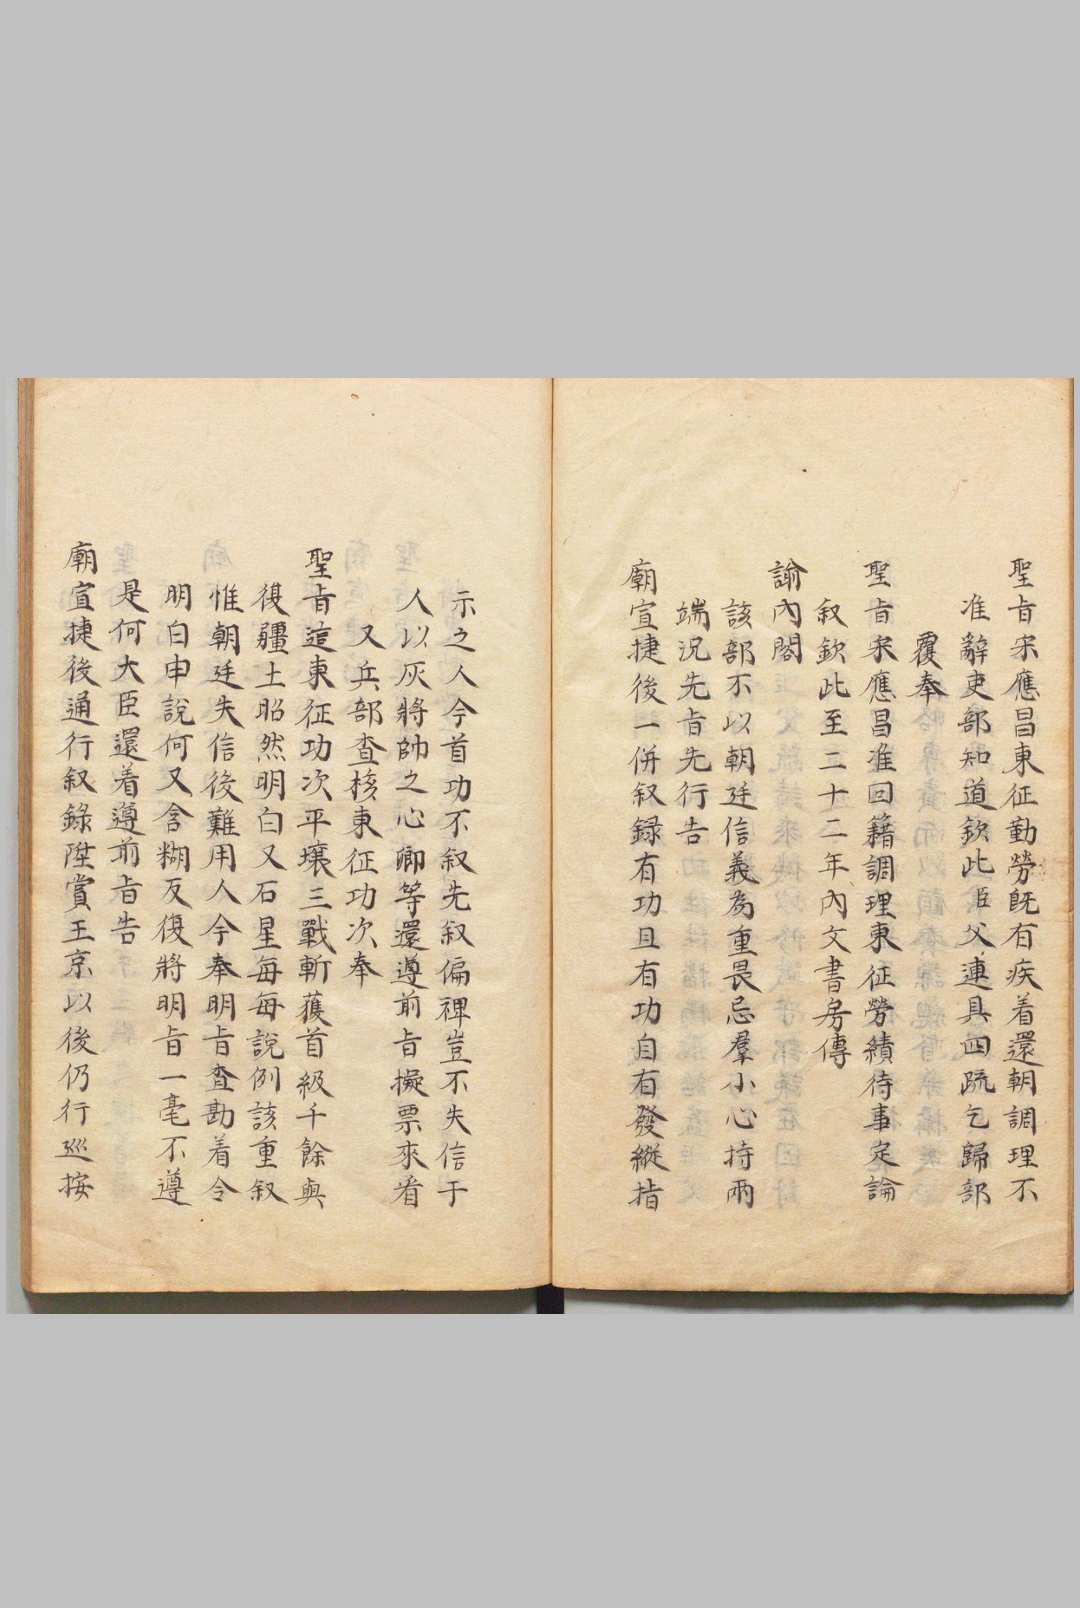 聖旨宋應昌東征勤勞旣有疾着還朝調理不
准辭吏部知道欽此臣父連具四疏乞歸部
覆奉
聖旨宋應昌准回籍調理東征勞績待事定論
叙欽此至二十二年內文書房傳
諭內閣
該部不以朝廷信義為重畏忌羣小心持兩
端況先旨先行告
廟宣捷後一併叙録有功且有功自有發縱指
示之人今首功不叙先叙偏裨豈不失信于
人以灰將帥之心卿等還遵前旨擬票來看
又兵部查核東征功次奉
聖旨這東征功次平壤三戰斬獲首級千餘與
復疆土昭然明白又石星每每說例該重叙
惟朝廷失信後難用人今奉明旨查勘着令
明白申說何又含糊反復將明旨一毫不遵
是何大臣還着遵前旨告
廟宣捷後通行叙錄陞賞王京以後仍行巡按